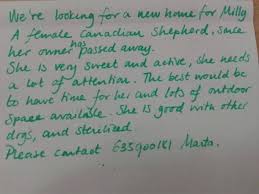 We're looking for a new home for Milly
A female Canadian Shepherd, since
her owner has passed away.
She is very sweet and active, she needs
a lot of attention. The best would be
to have time for her and lots of outdoor
space available. She is good with other
dogs, and sterilized.
Please contact 635900181 Marta.